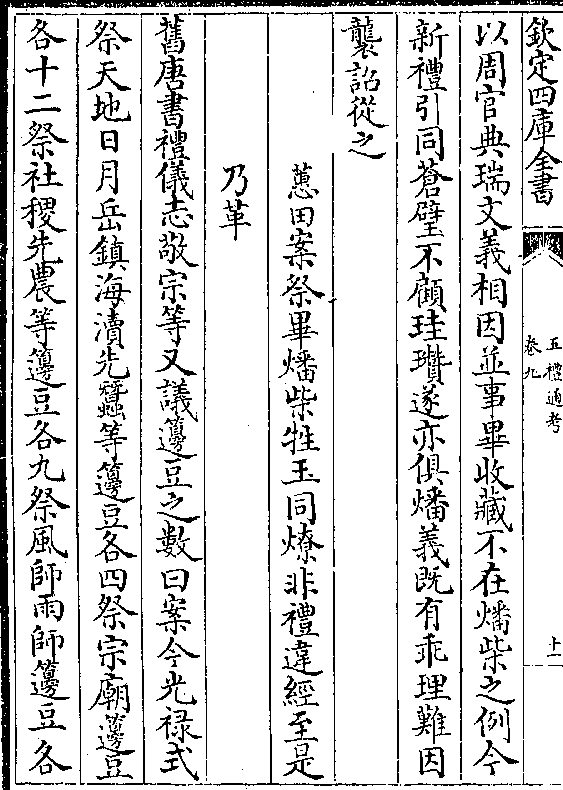 欽定四庫全書
五禮通考
卷九
十一
以周官典瑞文義相因並事畢收藏不在燔柴之例今
新禮引同蒼璧不顧珪瓚遂亦俱燔義既有乖理難因
襲詔從之
蕙田案祭畢燔柴牲玉同燎非禮違經至是
乃革
舊唐書禮儀志敬宗等又議籩豆之數曰案今光禄式
祭天地日月岳鎮海瀆先蠶等籩豆各四祭宗廟籩豆
各十二祭社稷先農等籩豆各九祭風師雨師籩豆各